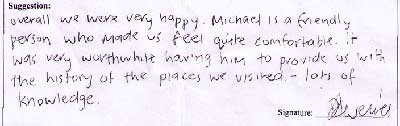 Suggestion:
overall we were very happy. Michael is a friendly
person who made us feel quite comfortable. it
was very worthwhile having him to provide us with
the history of the places we visited. - lots of
knowledge.
Signature: